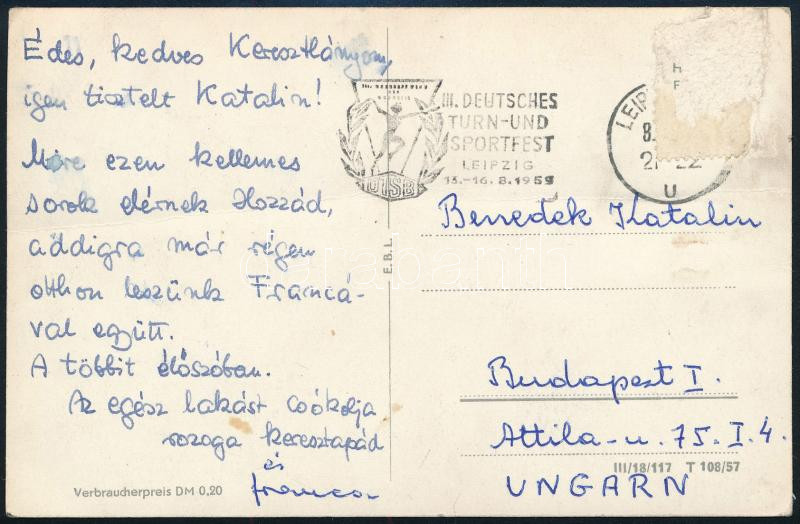 Édes, kedves Keresztlányom,
igen tisztelt Katalin!
Mire ezen kellemes
sorok elérnek Hozzád,
addigra már régen
otthon leszünk Francá-
val együtt.
A többit élőszóban.
Az egész lakást csókolja
rozoga keresztapád
és
Franca
Verbraucherpreis DM 0,20
E.B.L.
III. DEUTSCHES
TURN-UND
SPORTFEST
LEIPZIG
13.-16.8.1959
DTSB
LEIPZ
8.
21-22
u
Benedek Katalin
Budapest I.
Attila-u. 75. I. 4.
III/18/117 T 108/57
UNGARN